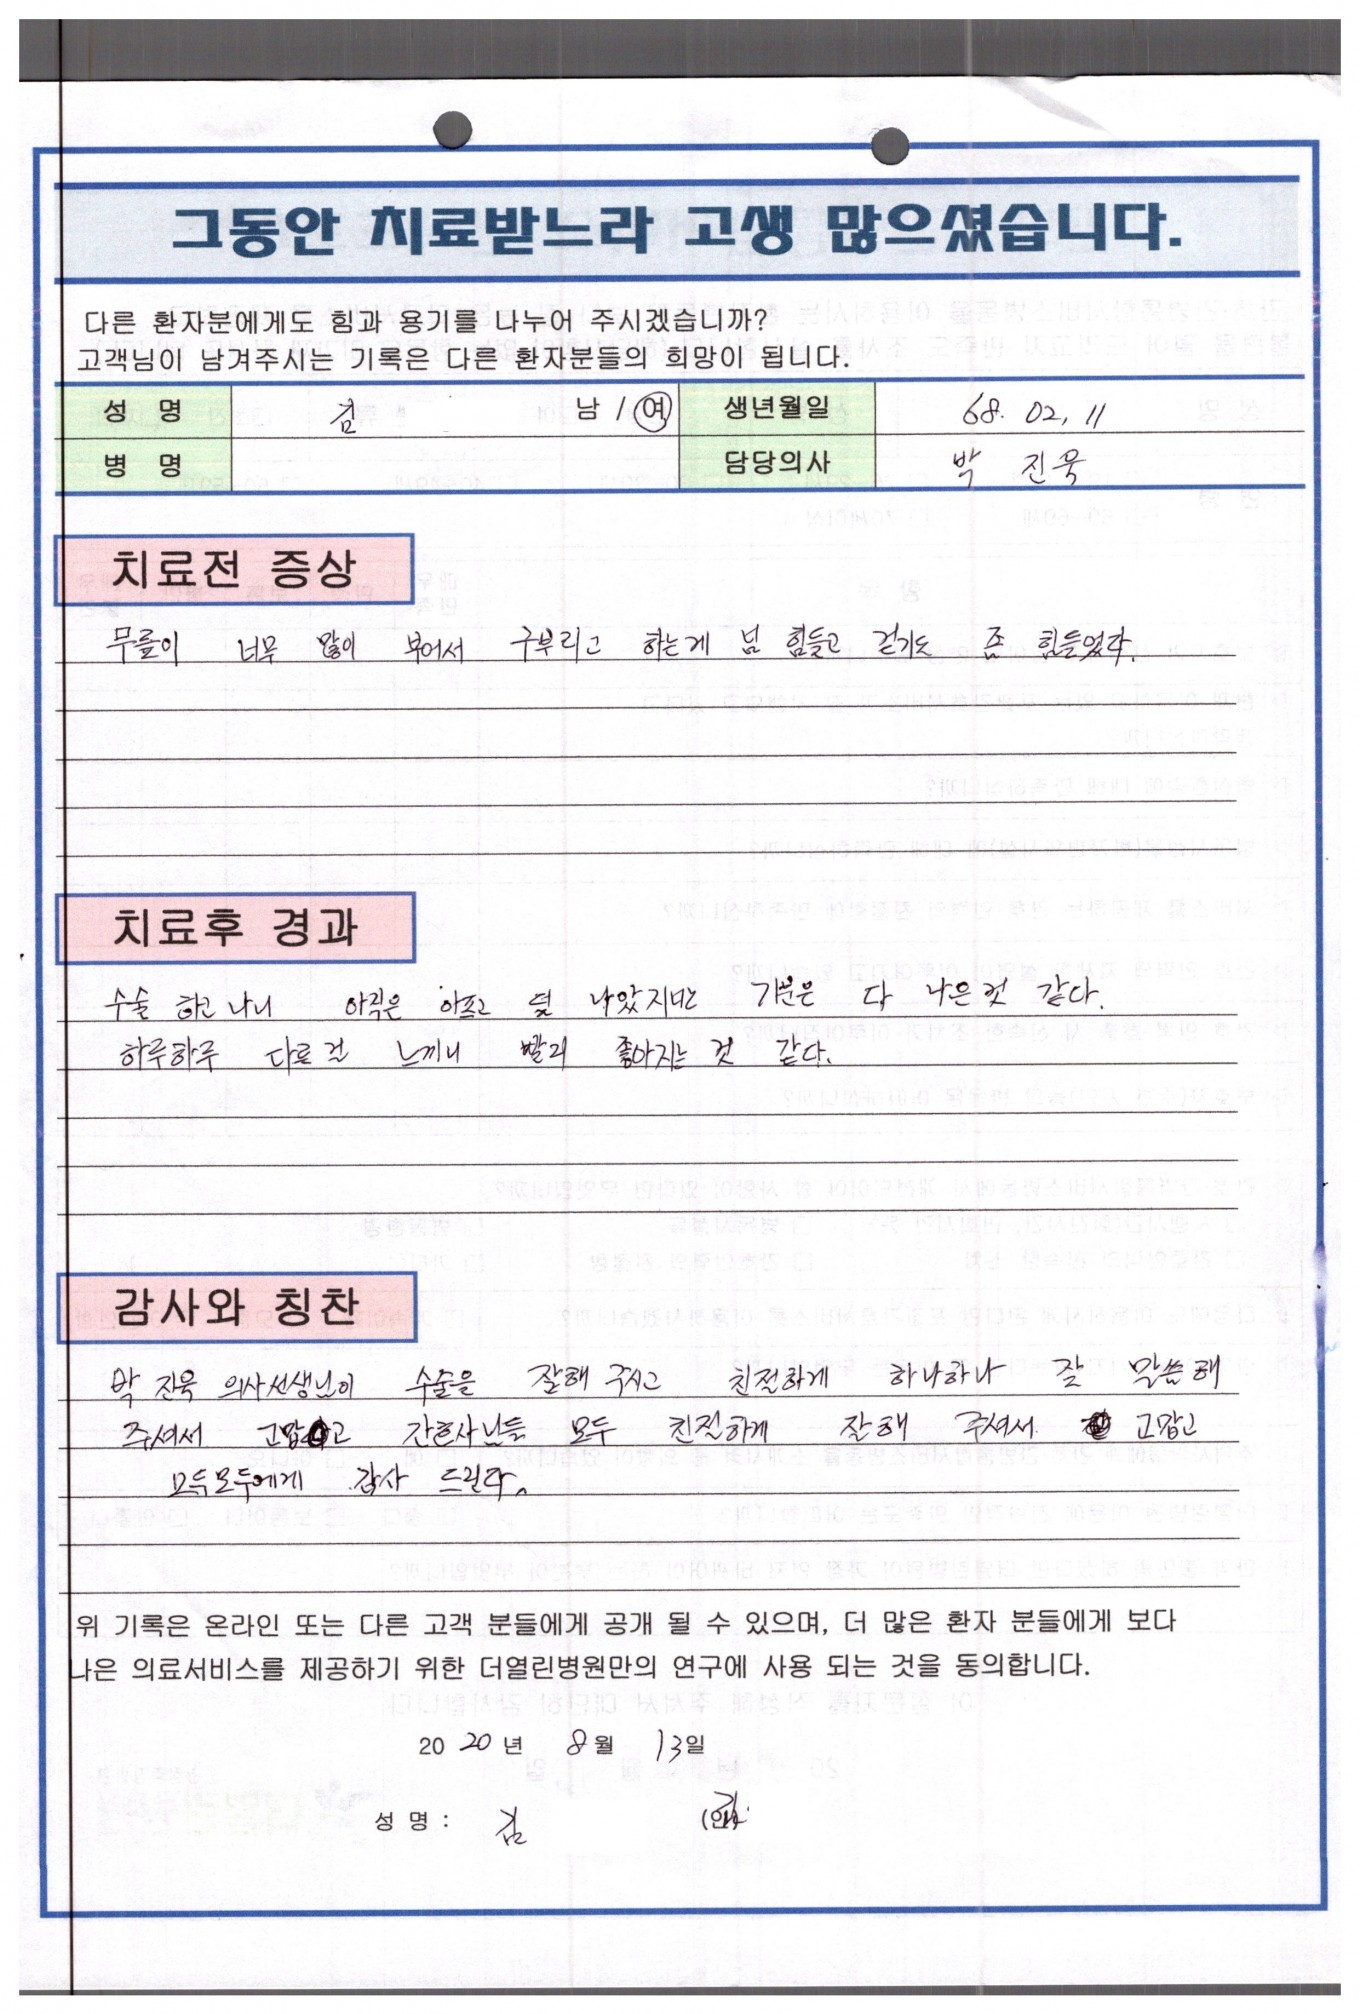 그동안 치료받느라 고생 많으셨습니다.
다른 환자분에게도 힘과 용기를 나누어 주시겠습니까?
고객님이 남겨주시는 기록은 다른 환자분들의 희망이 됩니다.
성 명 김 남 / 여 생년월일 68. 02, 11
병 명 담당의사 박 진욱
치료전 증상
무릎이 너무 많이 부어서 구부리고 하는게 넘 힘들고 걷기도 좀 힘들었다.
치료후 경과
수술 하고 나니 아직은 아프고 덜 나았지만 기분은 다 나은것 같다.
하루하루 다르건 느끼니 빨리 좋아지는 것 같다.
감사와 칭찬
박 진욱 의사선생님이 수술을 잘해 주시고 친절하게 하나하나 잘 말씀해
주셔서 고맙고 간호사님들 모두 친절하게 잘해 주셔서 고맙고
모두모두에게 감사 드린다.
위 기록은 온라인 또는 다른 고객 분들에게 공개 될 수 있으며, 더 많은 환자 분들에게 보다
나은 의료서비스를 제공하기 위한 더열린병원만의 연구에 사용 되는 것을 동의합니다.
20 20 년 8 월 13 일
성 명 : 김 (인)